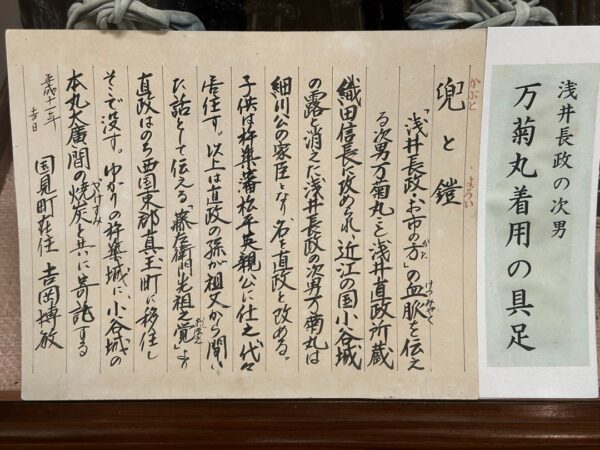 浅井長政の次男
万菊丸着用の具足
兜と鎧
かぶと
よろい
「浅井長政・お市の方」の血脈を伝え
かた
けつみゃく
る次男万菊丸こと浅井直政所蔵
織田信長に攻められ、近江の国小谷城
の露と消えた浅井長政の次男万菊丸は
細川公の家臣となり名を直政と改める。
子供は杵築藩松平英親公に仕え代々
居住す。以上は直政の孫が祖父から聞い
た話として伝える「藤左衛門先祖之覚」より
おぼえ
直政はのち西国東郡真玉町に移住し
そこで没す。ゆかりの杵築城に、小谷城の
本丸大廣間の焼炭と共に寄託する
やけずみ
平成十一年
吉日
国見町在住 吉岡博敏